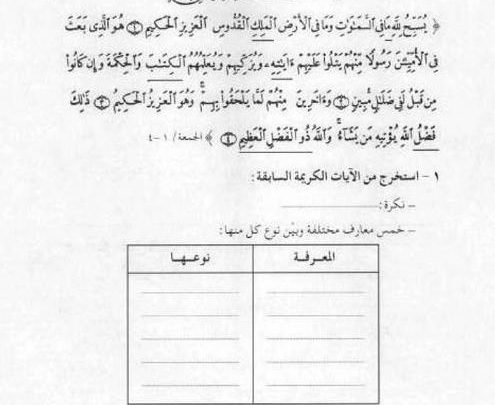 ﴿ يُسَبِّحُ لِلَّهِ مَا فِي السَّمَاوَاتِ وَمَا فِي الْأَرْضِ الْمَلِكِ الْقُدُّوسِ الْعَزِيزِ الْحَكِيمِ ١ هُوَ الَّذِي بَعَثَ
فِي الْأُمِّيِّينَ رَسُولًا مِنْهُمْ يَتْلُوا عَلَيْهِمْ ءَايَاتِهِ وَيُزَكِّيهِمْ وَيُعَلِّمُهُمُ الْكِتَابَ وَالْحِكْمَةَ وَإِن كَانُوا
مِن قَبْلُ لَفِي ضَلَالٍ مُّبِينٍ ٢ وَءَاخَرِينَ مِنْهُمْ لَمَّا يَلْحَقُوا بِهِمْ وَهُوَ الْعَزِيزُ الْحَكِيمُ ٣ ذَٰلِكَ
فَضْلُ اللَّهِ يُؤْتِيهِ مَن يَشَاءُ وَاللَّهُ ذُو الْفَضْلِ الْعَظِيمِ ٤ ﴾ الجمعة / ١ - ٤
١ - استخرج من الآيات الكريمة السابقة :
- نكرة :
- خمس معارف مختلفة وبيّن نوع كل منها :
المعرفة نوعها